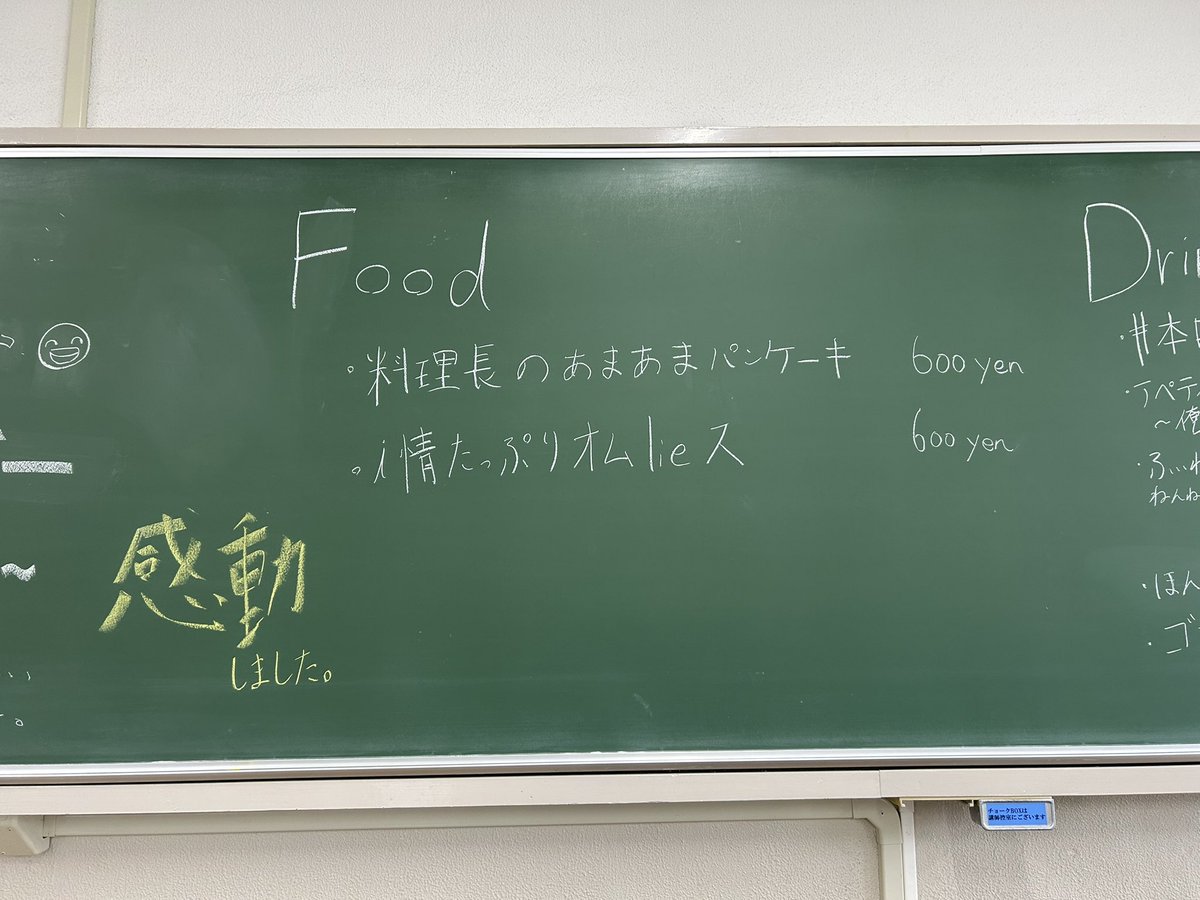 Food
・料理長のあまあまパンケーキ 600 yen
・i情たっぷりオムlieス 600 yen
感動
しました。
Dri
・#本日
・Tペテ
～俺
・ふぃれ
ねんね
・ほん
・ゴ
チョークBOXは
講師控室にございます